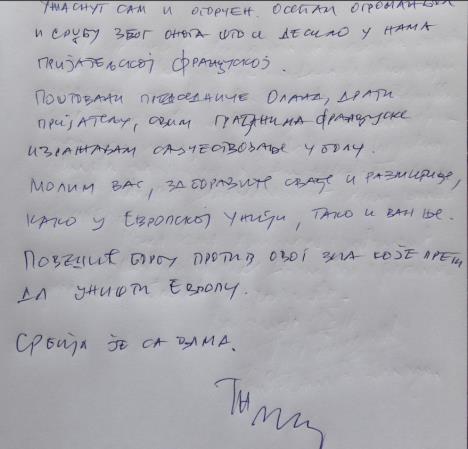 УЖАСНУТ САМ И ОГОРЧЕН. ОСЕЋАМ ОГРОМАН БОЛ
И СРЏБУ ЗБОГ ОНОГА ШТО СЕ ДЕСИЛО У НАМА
ПРИЈАТЕЉСКОЈ ФРАНЦУСКОЈ.
ПОШТОВАНИ ПРЕДСЕДНИЧЕ ОЛАНД, ДРАГИ
ПРИЈАТЕЉУ, СВИМ ГРАЂАНИМА ФРАНЦУСКЕ
ИЗРАЖАВАМ САУЧЕСТВОВАЊЕ У БОЛУ.
МОЛИМ ВАС, ЗАБОРАВИТЕ СВАЂЕ И РАЗМИРИЦЕ,
КАКО У ЕВРОПСКОЈ УНИЈИ, ТАКО И ВАН ЊЕ.
ПОВЕДИТЕ БОРБУ ПРОТИВ ОВОГ ЗЛА КОЈЕ ПРЕТИ
ДА УНИШТИ ЕВРОПУ.
СРБИЈА ЈЕ СА ВАМА.